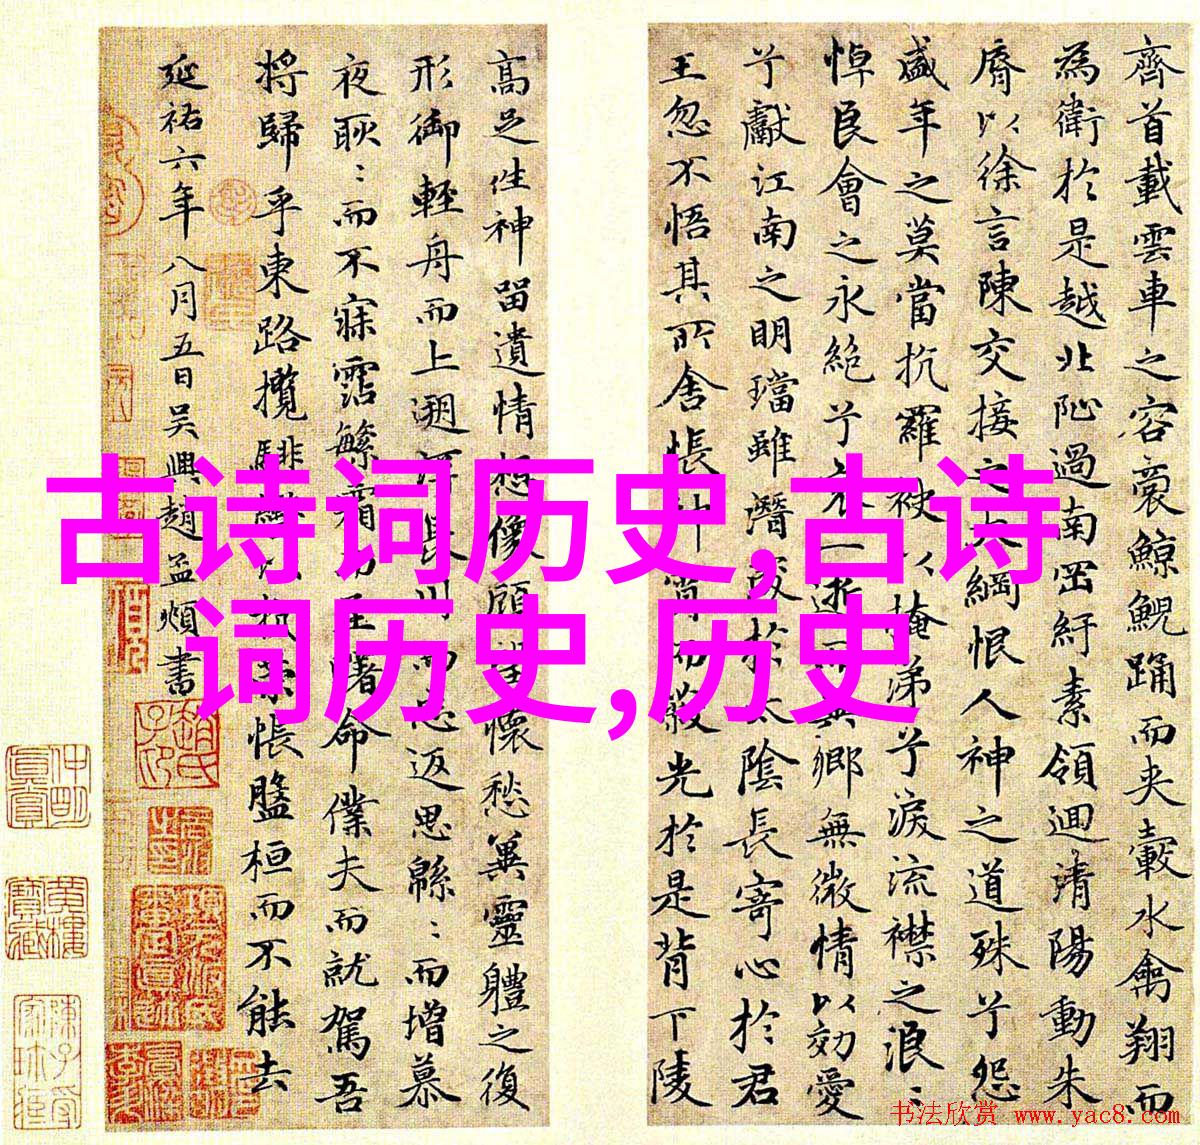 齊首載雲車之容裔鯨鯢踊而夾轂水禽翔而
為衛於是越北沚過南岡紆素領迴清陽動朱
脣以徐言陳交接之大綱恨人神之道殊兮怨
盛年之莫當抗羅袂以掩涕兮淚流襟之浪〻
悼良會之永絕兮哀一逝而異鄉無微情以効愛
兮獻江南之明璫雖潛處於太陰長寄心於君
王忽不悟其所舍悵神宵而蔽光於是背下陵
高足往神留遺情想像顧望懷愁冀靈軆之復
形御輕舟而上遡浮長川而忘返思緜〻而增慕
夜耿〻而不寐霑繁霜而至曙命僕夫而就駕吾
將歸乎東路攬騑轡以抗策悵盤桓而不能去
延祐六年八月五日吳興趙孟頫書
古诗词历史,古诗
词历史,历史
书法欣赏 www.yac8.com